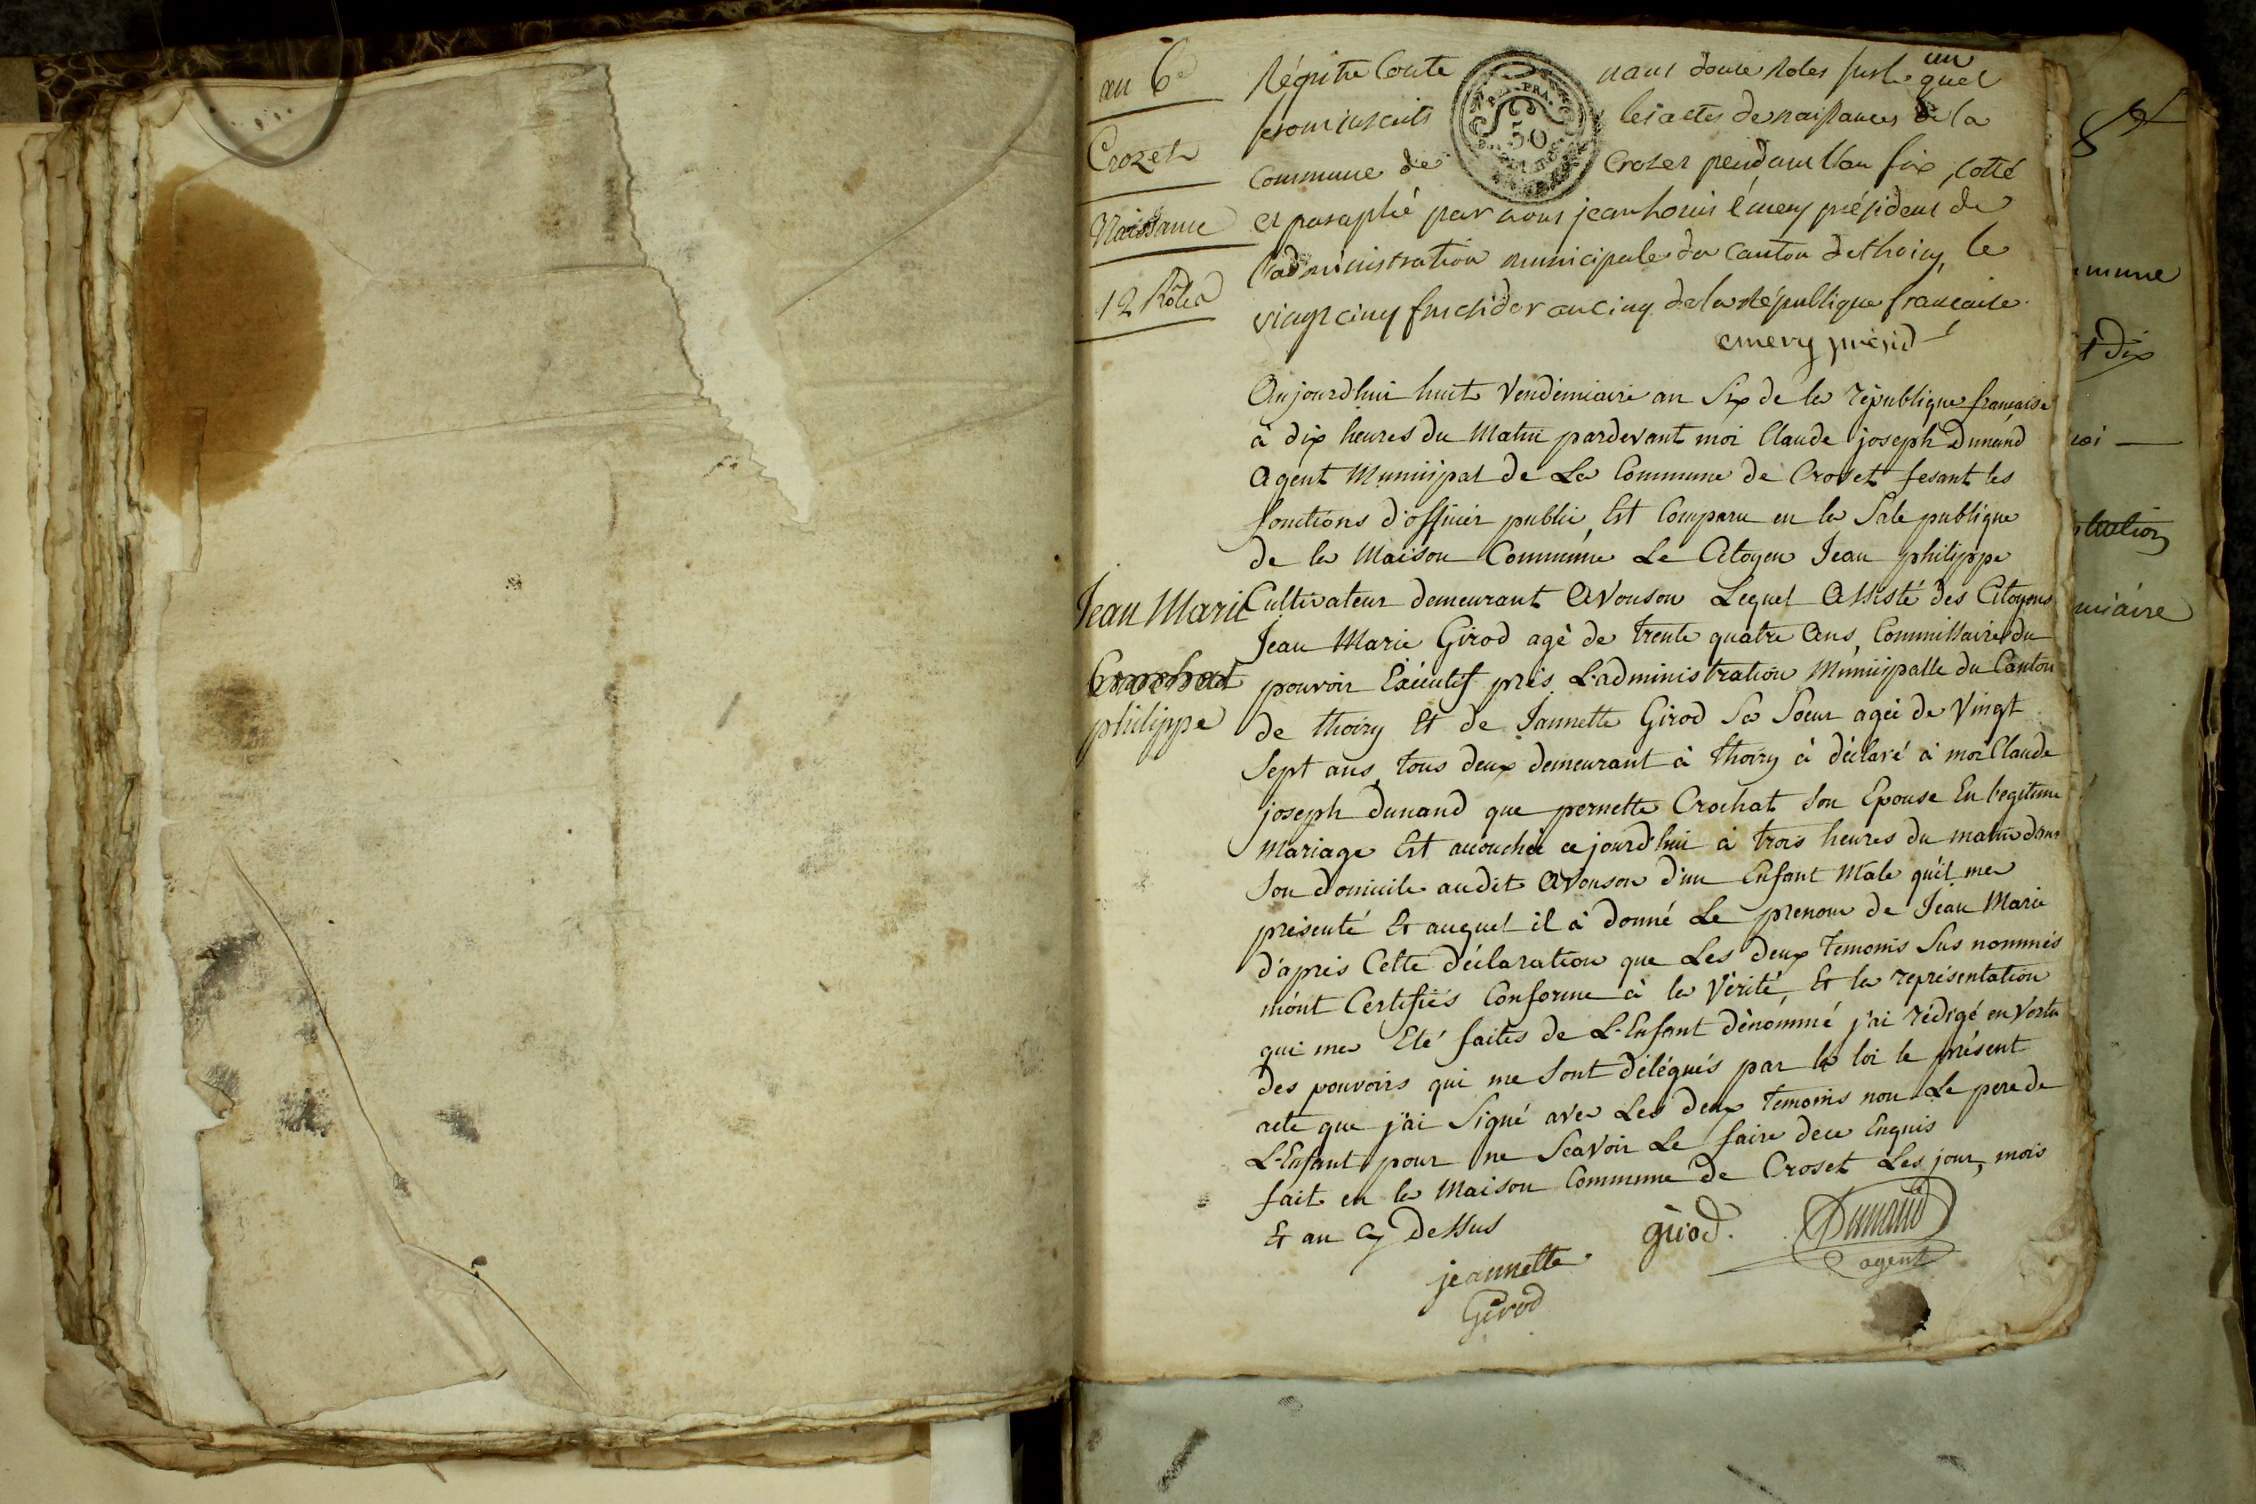 an 6e
Crozet
Naissance
12 Rôles
Régitre Conte nant douze Roles sur le quel
un
seront inscrits les actes de naissances de la
Commune de Crozet pendant l'an six, cotté
et paraphé par nous jean Louis émery président de
l'administration municipale du canton de thoiry, le
vingt cinq fructidor an cinq de la République francaise.
emery présidt
50
Aujourdhui huit Vendemiaire an Six de la république française
à dix heures du Matin pardevant moi Claude joseph Dunand
Agent Municipal de La Commune de Croset fesant les
fonctions d'officier public, Est Comparu en la Sale publique
de la Maison Commune Le Citoyen Jean philippe
Cultivateur demeurant Avouson Lequel Assisté des Citoyens
Jean Marie Girod agé de trente quatre Ans, Commissaire du
pouvoir Exécutif près L'administration Municipalle du Canton
de thoiry Et de Jannette Girod Sa Soeur agée de Vingt
Sept ans, tous deux demeurant à Thoiry à déclaré à moi Claude
joseph Dunand que pernette Crochat Son Epouse En legitime
Mariage Est acouchée ce jourd'hui à trois heures du matin dans
Son domicile audit Avouson d'un Enfant Mâle qu'il ma
présenté Et auquel il à donné Le prenom de Jean Marie
d'après Cette déclaration que Les deux temoins Sus nommés
m'ont Certifiés Conforme à la Vérité, Et la représentation
qui ma Eté faites de L'Enfant dénommé j'ai rédigé en Vertu
des pouvoirs qui me Sont délégués par la loi le présent
acte que j'ai Signé avec Les deux temoins non Le pere de
L'Enfant pour ne Scavoir Le faire dece Enquis
fait en la Maison Commune de Croset Les jour, mois
Et an Cy Dessus
Jean Marie
Crochat
philippe
jeannette
Girod
girod.
Dunand
agent
mmune
dix
miaire